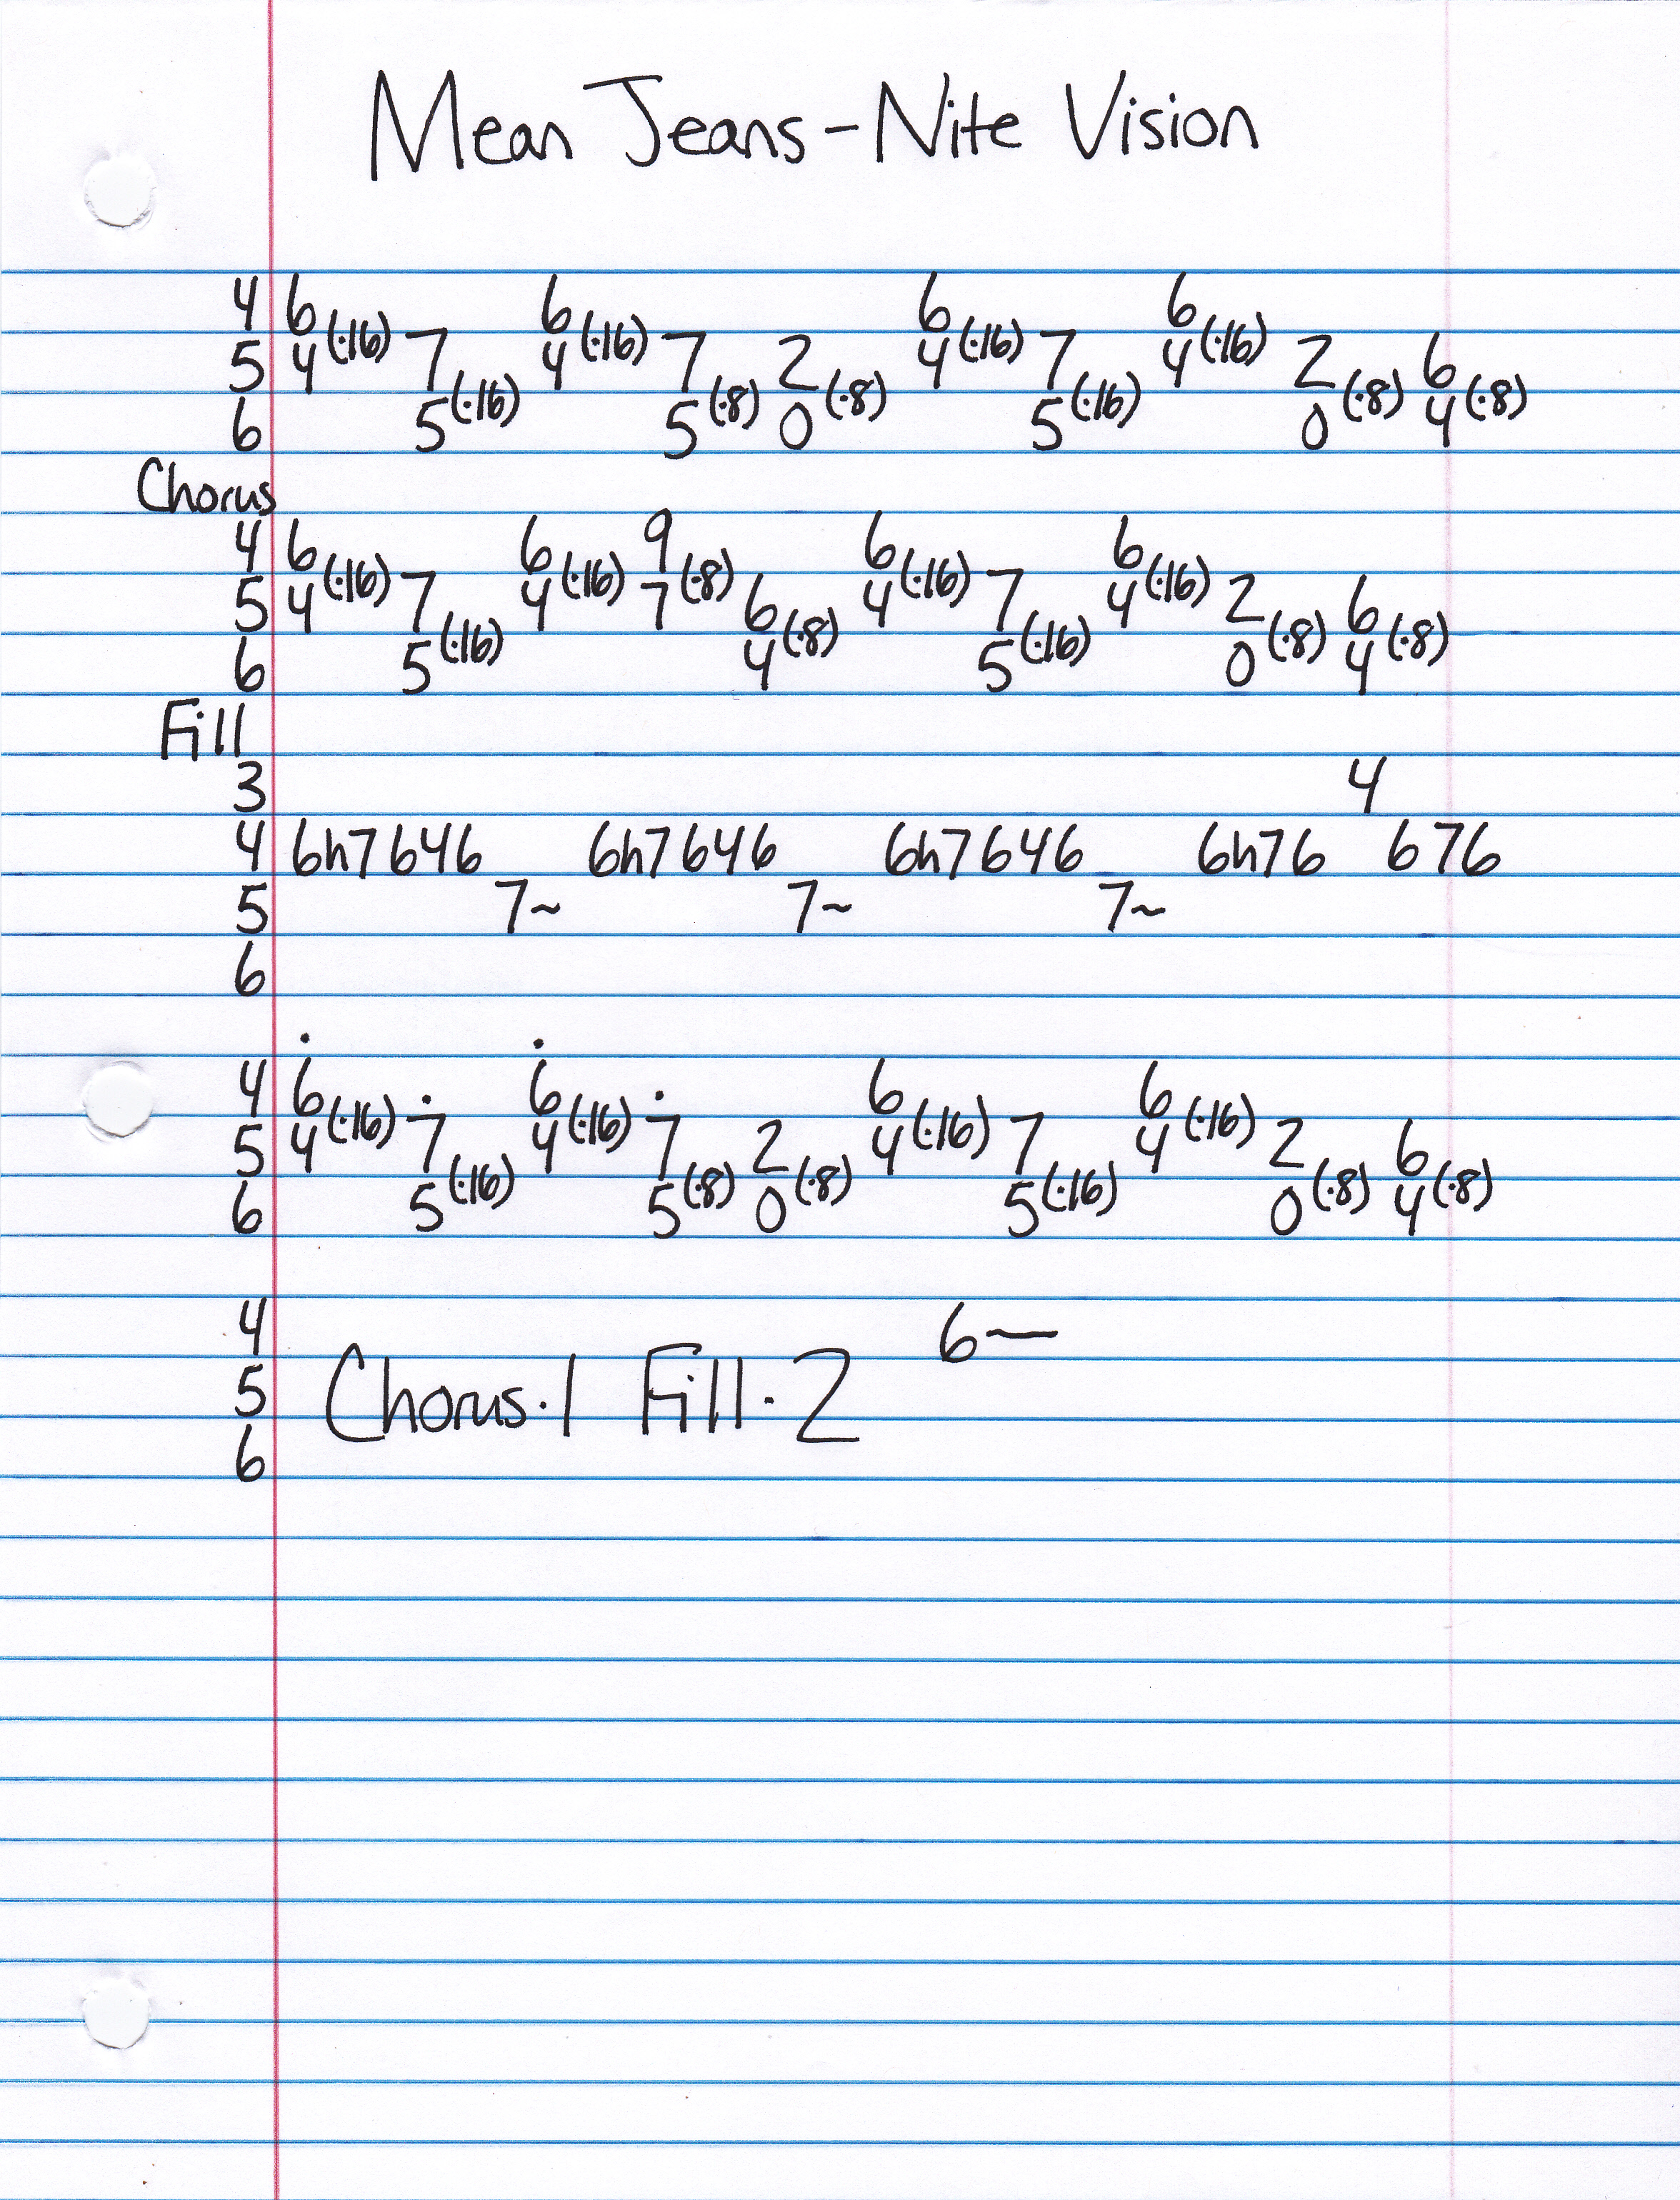 Mean Jeans - Nite Vision
4 6 6 6 6
5 4(·16) 7 4(·16) 7 2 4(·16) 7 4(·16) 2 6
6 5(·16) 5(·8) 0(·8) 5(·16) 0(·8) 4(·8)
Chorus
4 6 6 9 6 6
5 4(·16) 7 4(·16) 7(·8) 6 4(·16) 7 4(·16) 2 6
6 5(·16) 4(·8) 5(·16) 0(·8) 4(·8)
Fill
3 4
4 6h7646 6h7646 6h7646 6h76 676
5 7~ 7~ 7~
6
4 6 6 6 6
5 4(·16) 7 4(·16) 7 2 4(·16) 7 4(·16) 2 6
6 5(·16) 5(·8) 0(·8) 5(·16) 0(·8) 4(·8)
4 6—
5 Chorus·1 Fill·2
6